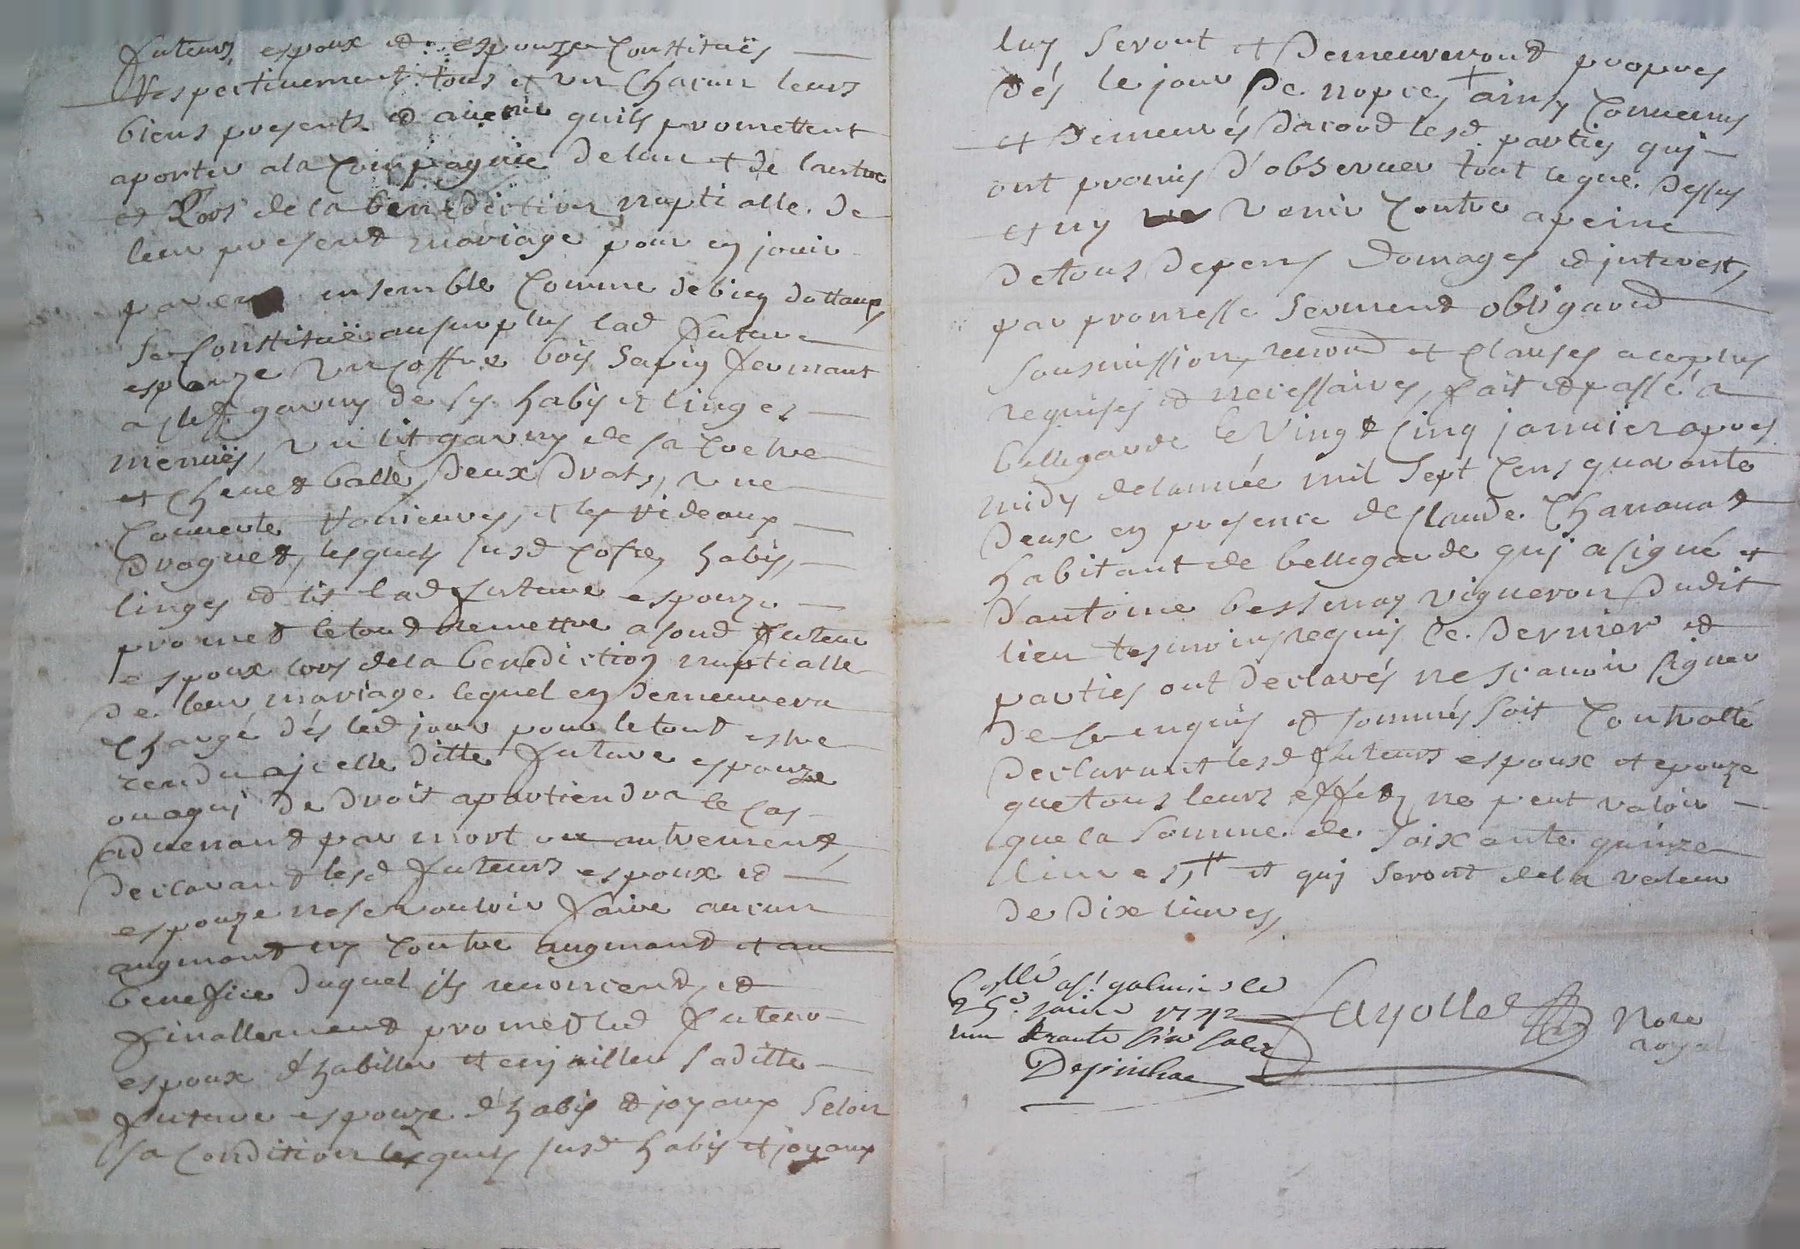 futeurs espoux et espouze constitués
respectivement tous et un chacun leurs
biens presents et avenir quils promettent
aporter ala compagnie delun et de lautre
et Lors de la benediction nuptialle de
leur present mariage pour en jouir
par eux ensemble comme de bien dottaux
se constitue ausurplus lad future
espouze un coffre bois sapin fermant
a clef garny de ses habis et linges
menues, un lit garny de sa
et chevet balle, deux draps, une
couverte et les rideaux
droguet, lesquels susd cofre, habis,
linges et lit lad future espouze
promet letout remettre a sond futeur
espoux lors dela benediction nuptialle
de leur mariage lequel en demeurera
chargé dés led jour pour le tout estre
rendu ajcelle ditte future espouze
ou aqui de droit apartiendra le cas
advenant par mort ou autrement,
declarant lesd futeurs espoux et
espouze ne se vouloir faire aucun
augment ny contre augmand et au
benefice duquel ils renoncent, et
finallement promet led futeur
espoux d'habiller et enjoailler saditte
future espouze d'habis et joyaux selon
sa condition lesquels susd habis et joyaux
luy seront et demeureront propres
dés le jour de nopces, ainsy convenus
et demeurés dacord lesd parties quj
ont promis d'observer tout ce que dessus
et ny venir contre apeine
detous depens domages et jnterest,
par promesse serment obligaõn
sousmission, renonõn et clauses acequis
requises et necessaires, fait et passé a
bellegarde le vingt cinq janvier apres
midy delannée mil sept cens quarante
deux en presence de claude
habitant de bellegarde quj a signé et
d'antoine bessenay vigneron dudit
lieu tesmoins requis ce dernier et
parties ont declarés ne scavoir signer
de ce enquis et sommés soit controllé
declarant lesd futeurs espoux et epouze
que tous leurs effets ne peut valoir
que la somme de soixante quinze
livres, et quj seront dela valeur
de dix livres,
Collé a St galmier le
25e janvier 1742
une trante six sols
Despinhac
Fayolle
Nore
royal